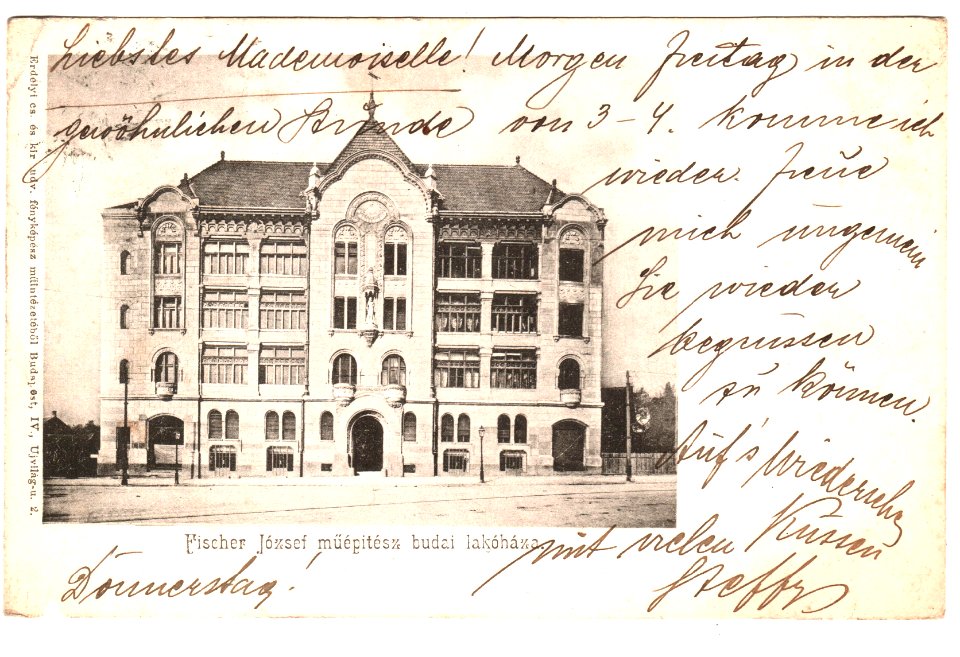 Liebstes Mademoiselle! Morgen Freitag in der
gewöhnlichen Stunde von 3-4. komme ich
wieder. Freue
mich ungemein
Sie wieder
begrüssen
zu können.
Auf's Wiedersehen
mit vielen Küssen
Steffy
Donnerstag!
Fischer József műépitész budai lakóháza.
Erdélyi cs. és kir. udv. fényképész műintézetéből Budapest, IV., Ujvilág-u. 2.